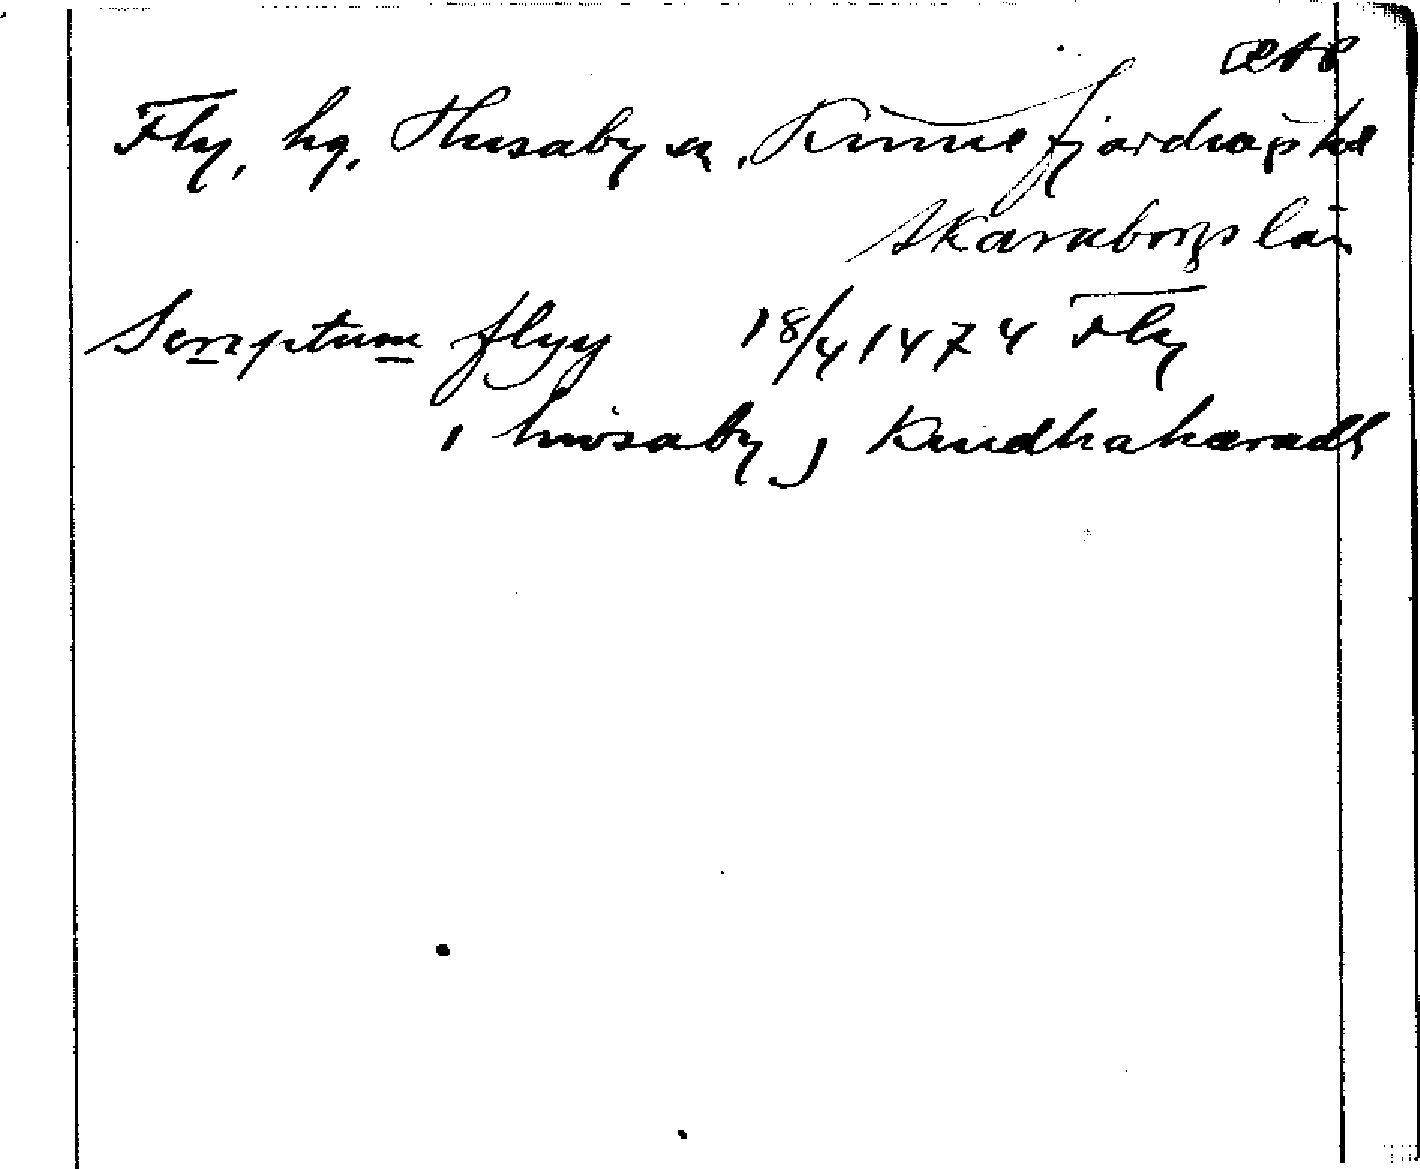 Fly, hg, Husaby sn, Kinnefjärdings hd
Skaraborgs län
Scriptum flyy 18/4 1474 Fly
i husaby j Kindhahæradh